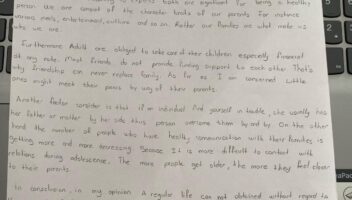 person we are consist of the character traits of our parents. For instance
various meals, entertainment, culture and so on. Rather our families are what make us
who we are.
Furthermore Adult are obliged to take care of their children especially financial
at any rate. Most friends do not provide finding support to each other. That's
why friendship can never replace family. As far as I am concerned little
ones might meet their peers by way of their parents.
Another factor consider is that if an individual find yourself in trouble, she usually has
her father or mother by her side thus person overcome them by and by. On the other
hand the number of people who have healthy communication with their families is
getting more and more increasing. Because It is more difficult to contact with
relations during adolescence. The more people get older, the more they feel closer
to their parents.
In conclusion, in my opinion A regular life can not obtained without regard to